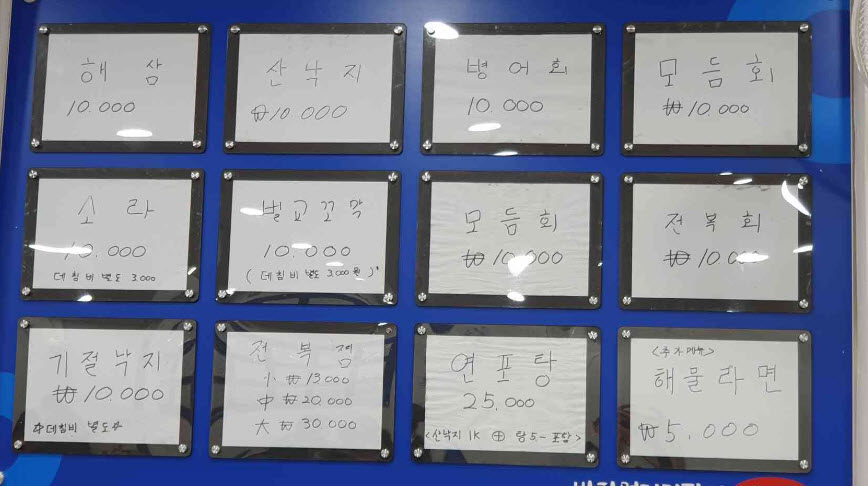 해 삼
10.000
산 낙 지
₩10.000
병 어 회
10.000
모 듬 회
₩10.000
소 라
10.000
데침비 별도 3.000
벌 교 꼬 막
10.000
( 데침비 별도 3.000원 )
모 듬 회
₩10.000
전 복 회
₩10.000
기 절 낙 지
₩10.000
데침비 별도
전 복 찜
小 ₩13.000
中 ₩20.000
大 ₩30.000
연 포 탕
25.000
<산낙지 1K ⊕ 탕5- 포함>
<추가메뉴>
해 물 라 면
₩5.000